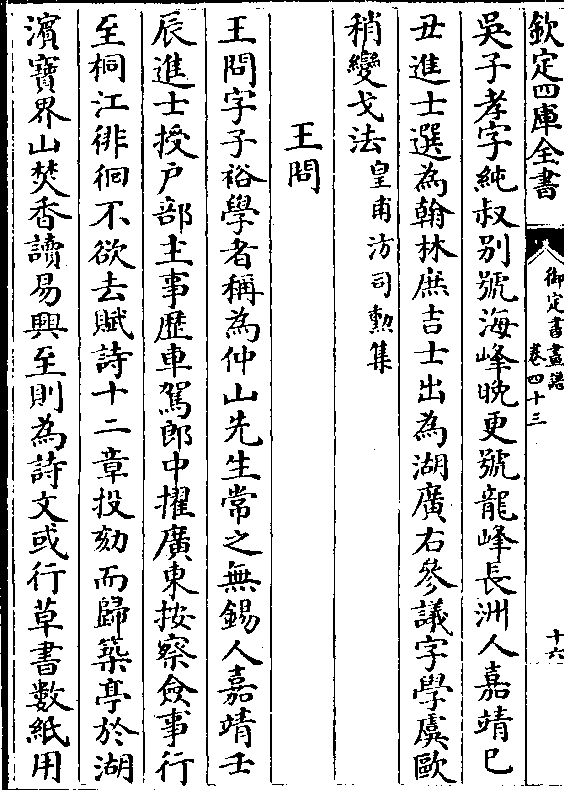 欽定四庫全書
御定書畫譜
卷四十三
十六
吳子孝字純叔别號海峰晚更號龍峰長洲人嘉靖已
丑進士選為翰林庶吉士出為湖廣右參議字學虞歐
稍變戈法皇甫汸司勲集
王問
王問字子裕學者稱為仲山先生常之無錫人嘉靖壬
辰進士授户部主事歴車駕郎中擢廣東按察僉事行
至桐江徘徊不欲去賦詩十二章投劾而歸築亭於湖
濱寶界山焚香讀易興至則為詩文或行草書數紙用